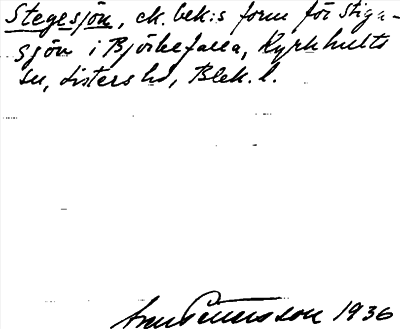 Stegesjön, ek. bek:s form för Stiga-
sjön i Björkefalla, Kyrkhults
sn, Listers hd, Blek. l.
Pettersson 1936